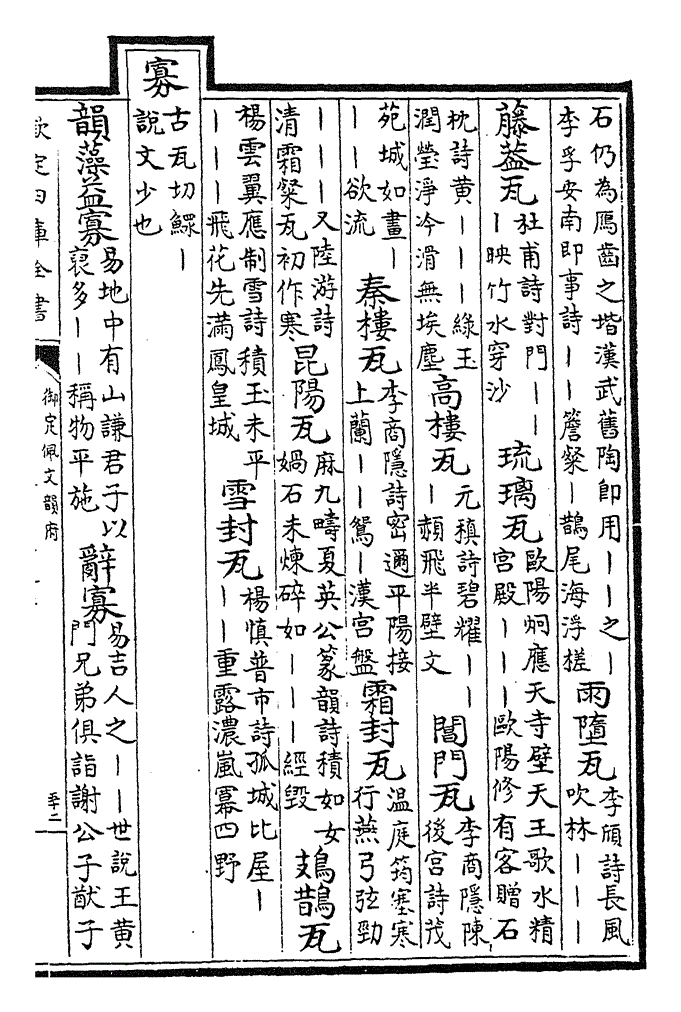 石仍為鴈齒之堦漢武舊陶即用丨丨之丨李孚安南即事詩丨丨簷粲丨鵲尾海浮槎雨墮瓦李頎詩長風吹林丨丨丨
藤蓋瓦杜甫詩對門丨丨丨映竹水穿沙琉璃瓦歐陽炯應天寺壁天王歌水精宮殿丨丨丨歐陽修有客贈石
枕詩黄丨丨丨綠玉潤瑩淨冷滑無埃塵高樓瓦元稹詩碧耀丨丨丨頳飛半壁文閶門瓦李商隱陳後宮詩茂
苑城如畫丨丨丨欲流秦樓瓦李商隱詩密邇平陽接上蘭丨丨鴛丨漢宮盤霜封瓦温庭筠塞寒行燕弓弦勁
丨丨丨又陸游詩清霜粲瓦初作寒昆陽瓦麻九疇夏英公篆韻詩積如女媧石未煉碎如丨丨丨經毀鳷鵲瓦
楊雲翼應制雪詩積玉未平丨丨丨飛花先滿鳳皇城雪封瓦楊慎普市詩孤城比屋丨丨丨重露濃嵐羃四野
寡古瓦切鰥丨說文少也
韻藻益寡易地中有山謙君子以裒多丨丨稱物平施辭寡易吉人之丨丨世說王黄門兄弟俱詣謝公子猷子
欽定四庫全書
御定佩文韻府